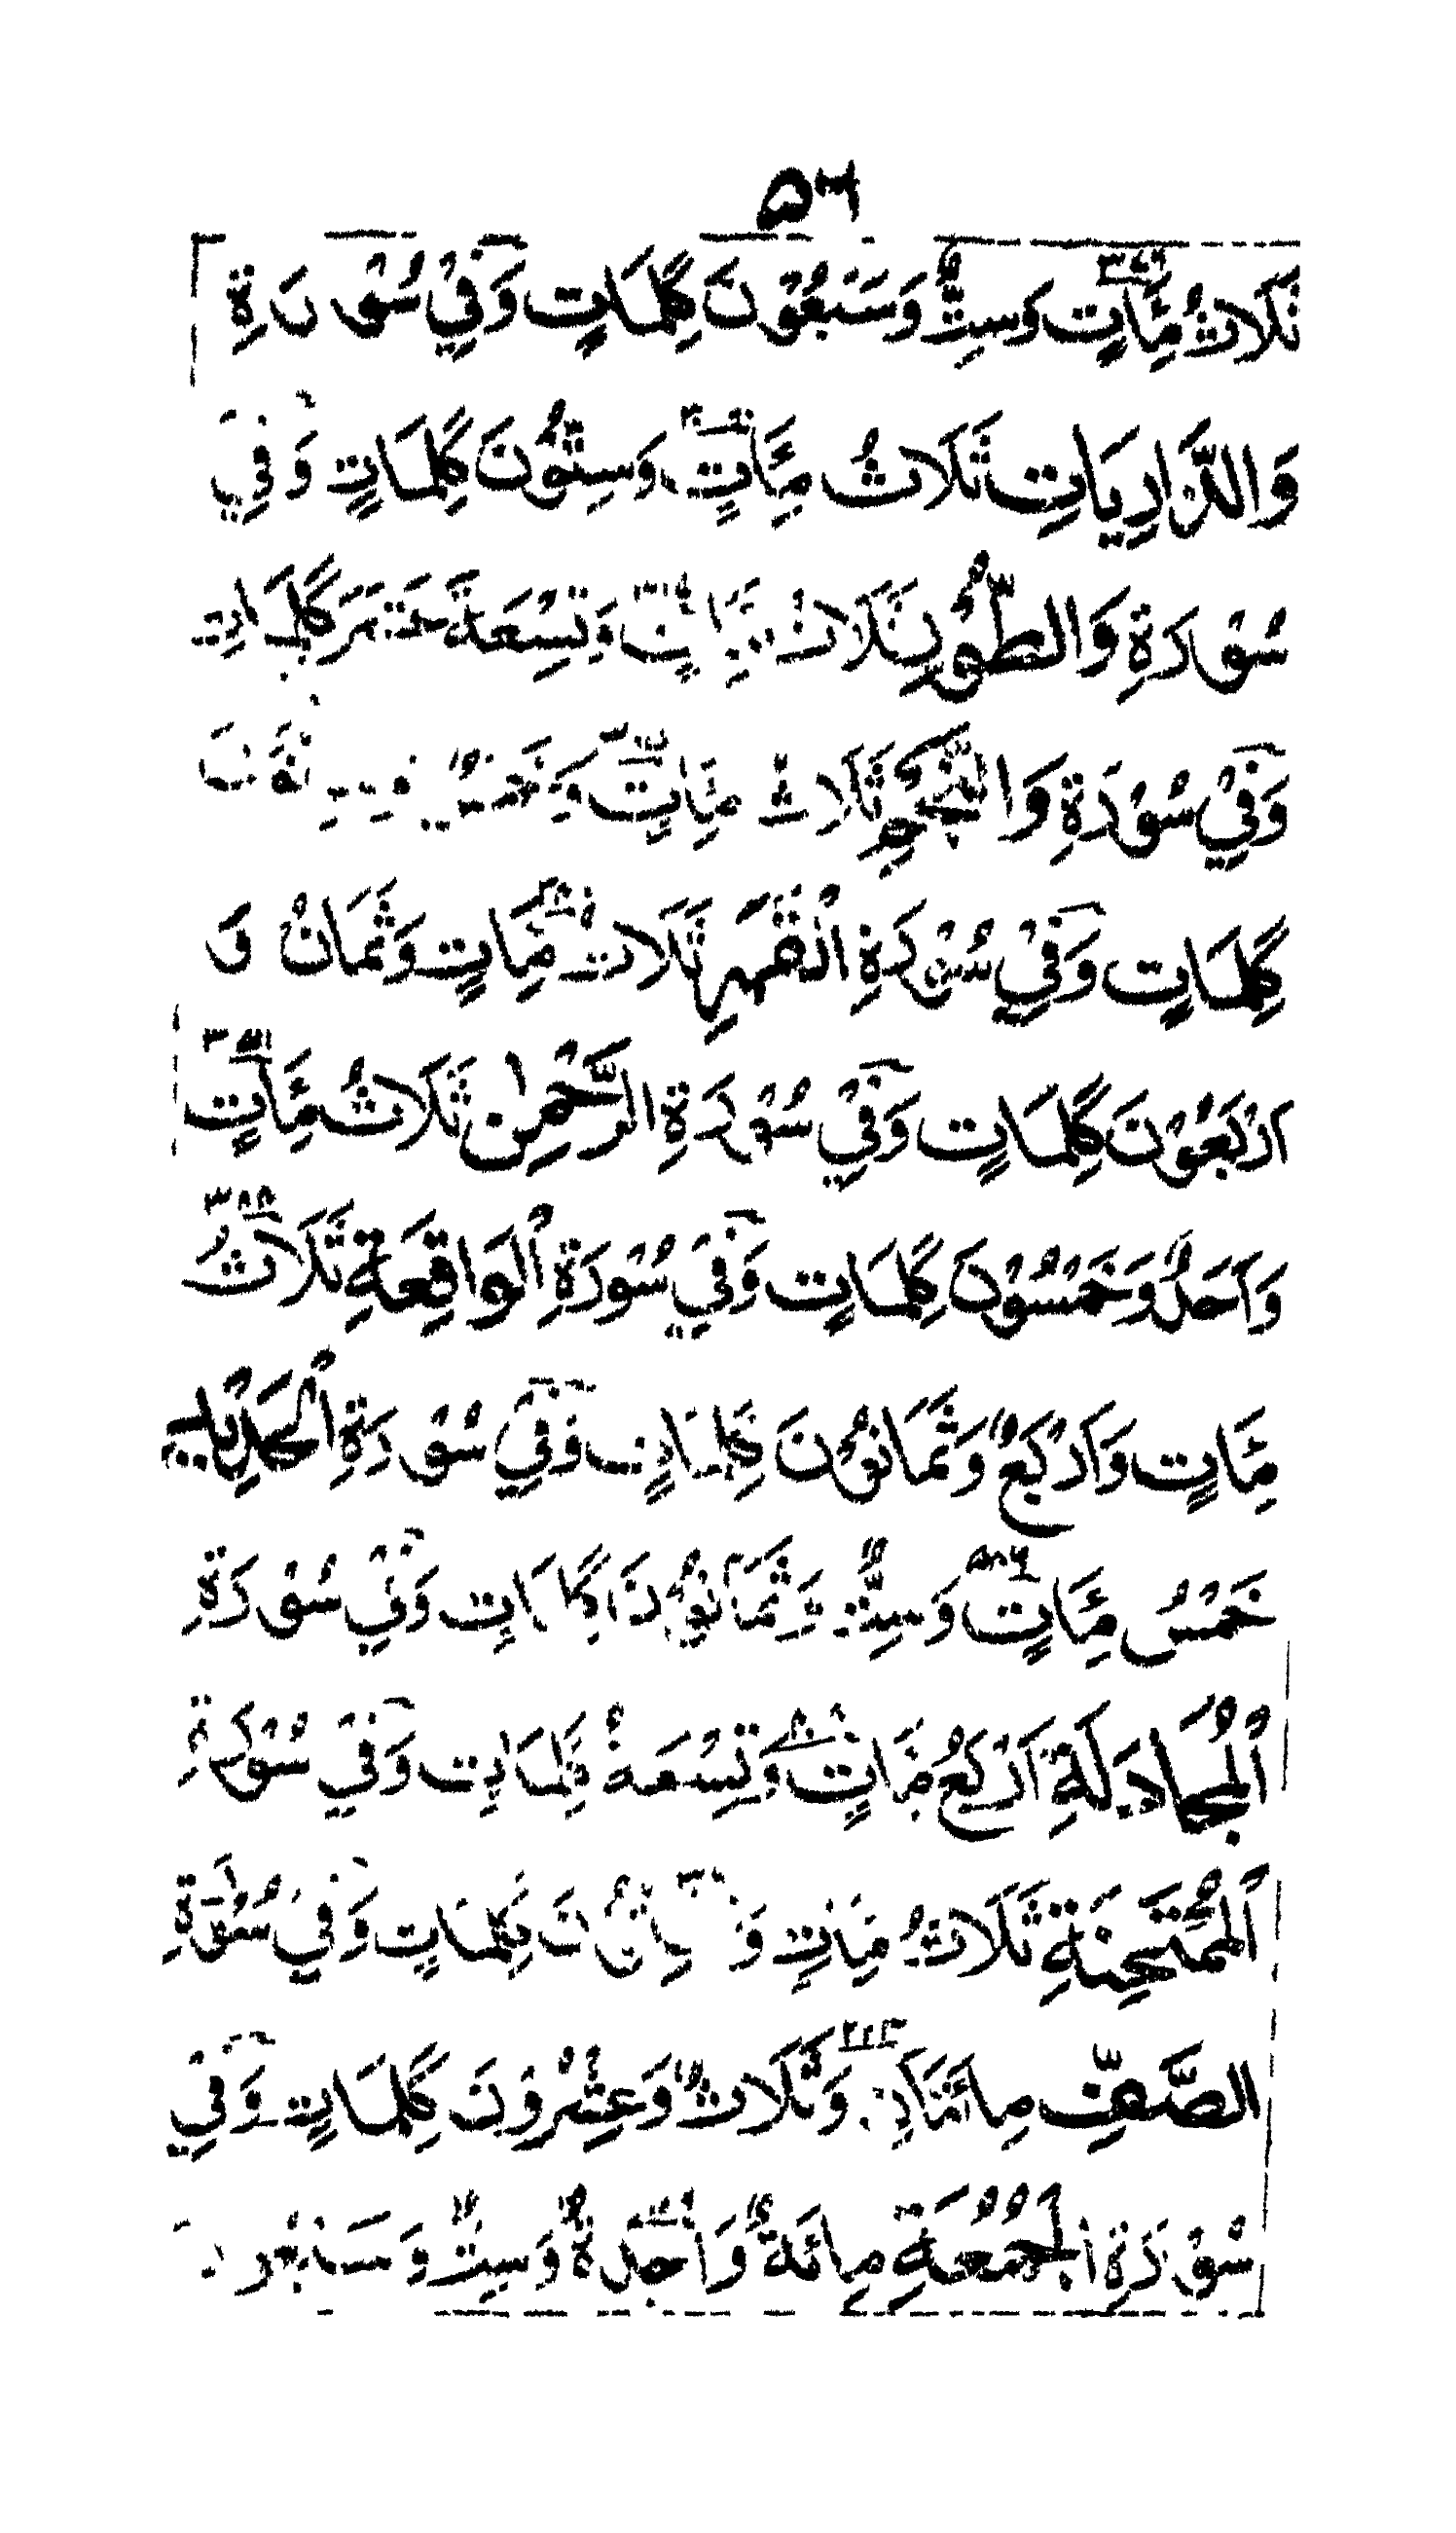 ٥٦
ثَلَاثُ مِّئَاتٍ وَسِتٌّ وَسَبْعُوْنَ كَلِمَاتٍ وَفِيْ سُوْرَةِ
وَالذَّارِيَاتِ ثَلَاثُ مِئَاتٍ وَسِتُّوْنَ كَلِمَاتٍ وَفِيْ
سُوْرَةِ وَالطُّوْرِ ثَلَاثُ مِئَاتٍ وَتِسْعَةَ عَشَرَ كَلِمَاتٍ
وَفِيْ سُوْرَةِ وَالنَّجْمِ ثَلَاثُ مِئَاتٍ
كَلِمَاتٍ وَفِيْ سُوْرَةِ الْقَمَرِ ثَلَاثُ مِئَاتٍ وَثَمَانْ وَ
اَرْبَعُوْنَ كَلِمَاتٍ وَفِيْ سُوْرَةِ الرَّحْمٰنِ ثَلَاثُ مِئَاتٍ ٣٥١
وَاَحَدٌ وَخَمْسُوْنَ كَلِمَاتٍ وَفِيْ سُوْرَةِ الْوَاقِعَةِ ثَلَاثُ
مِئَاتٍ وَاَرْبَعٌ وَثَمَانُوْنَ كَلِمَاتٍ وَفِيْ سُوْرَةِ الْحَدِيْدِ
خَمْسُ مِئَاتٍ وَسِتٌّ وَثَمَانُوْنَ كَلِمَاتٍ وَفِيْ سُوْرَةِ
الْمُجَادَلَةِ اَرْبَعُ مِئَاتٍ وَتِسْعَةٌ كَلِمَاتٍ وَفِيْ سُوْرَةِ
الْمُمْتَحِنَةِ ثَلَاثُ مِئَاتٍ كَلِمَاتٍ وَفِيْ سُوْرَةِ
الصَّفِّ مِائَتَانِ وَثَلَاثٌ وَعِشْرُوْنَ كَلِمَاتٍ وَفِيْ
سُوْرَةِ الْجُمُعَةِ مِائَةٌ وَاحِدَةٌ وَسِتٌّ وَسَبْعُوْنَ